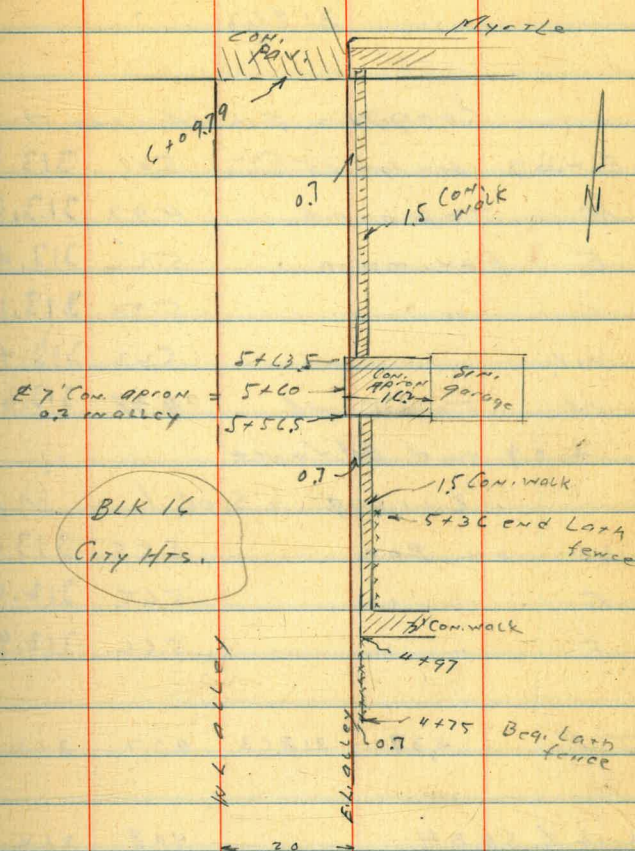 Myrtle
CON.
PAV.
6+09.79
N
0.7
1.5 CON.
WALK
5+63.5
℄ 7' CON. APRON = 5+60
0.2 in alley
5+56.5
CON.
APRON
16.2
SIN.
garage
0.7
1.5 CON. WALK
5+36 end Lath
fence
BLK 16
CITY HTS.
3' CON. WALK
4+97
4+75 Beg. Lath
fence
0.7
W L ALLEY
E.L. alley
20